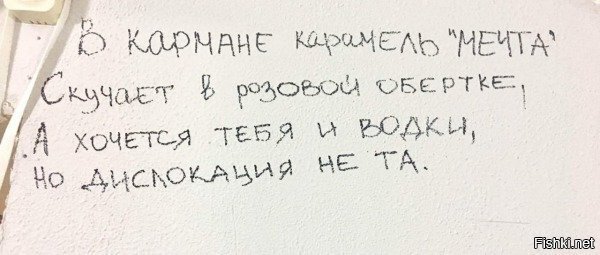 В КАРМАНЕ КАРАМЕЛЬ "МЕЧТА"
Скучает в розовой обертке,
А хочется тебя и водки,
Но дислокация не та.
Fishki.net